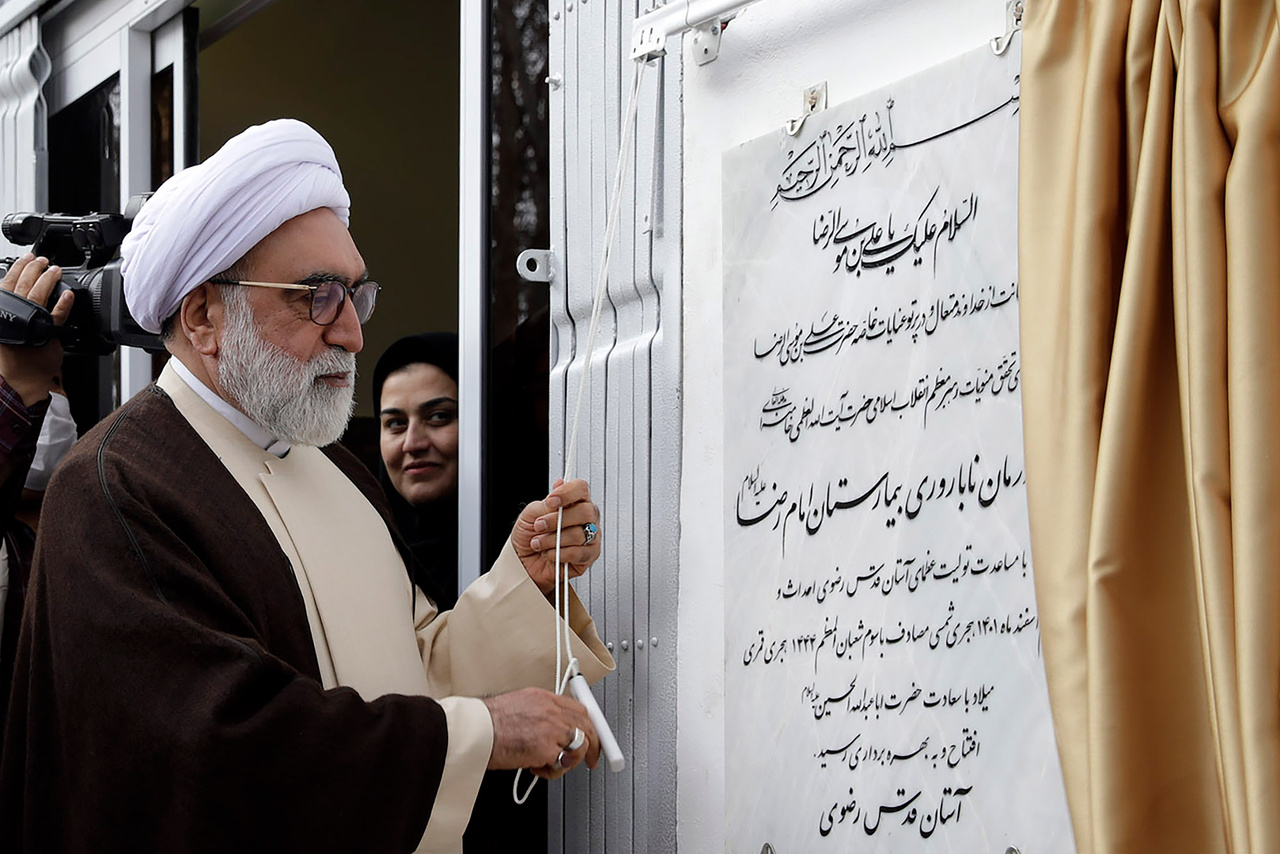 بسم الله الرحمن الرحیم
السلام علیک یا علی بن موسی الرضا
خداوند متعال و در پرتو عنایات خاصه حضرت علی بن موسی الرضا
تحقق منویات رهبر معظم انقلاب اسلامی حضرت آیت الله العظمی خامنه‌ای
درمان ناباروری بیمارستان امام رضا علیه السلام
با مساعدت تولیت عظمای آستان قدس رضوی احداث و
اسفند ماه ۱۴۰۱ هجری شمسی مصادف با سوم شعبان المعظم ۱۴۴۴ هجری قمری
میلاد با سعادت حضرت اباعبدالله الحسین علیه السلام
افتتاح و به بهره برداری رسید.
آستان قدس رضوی